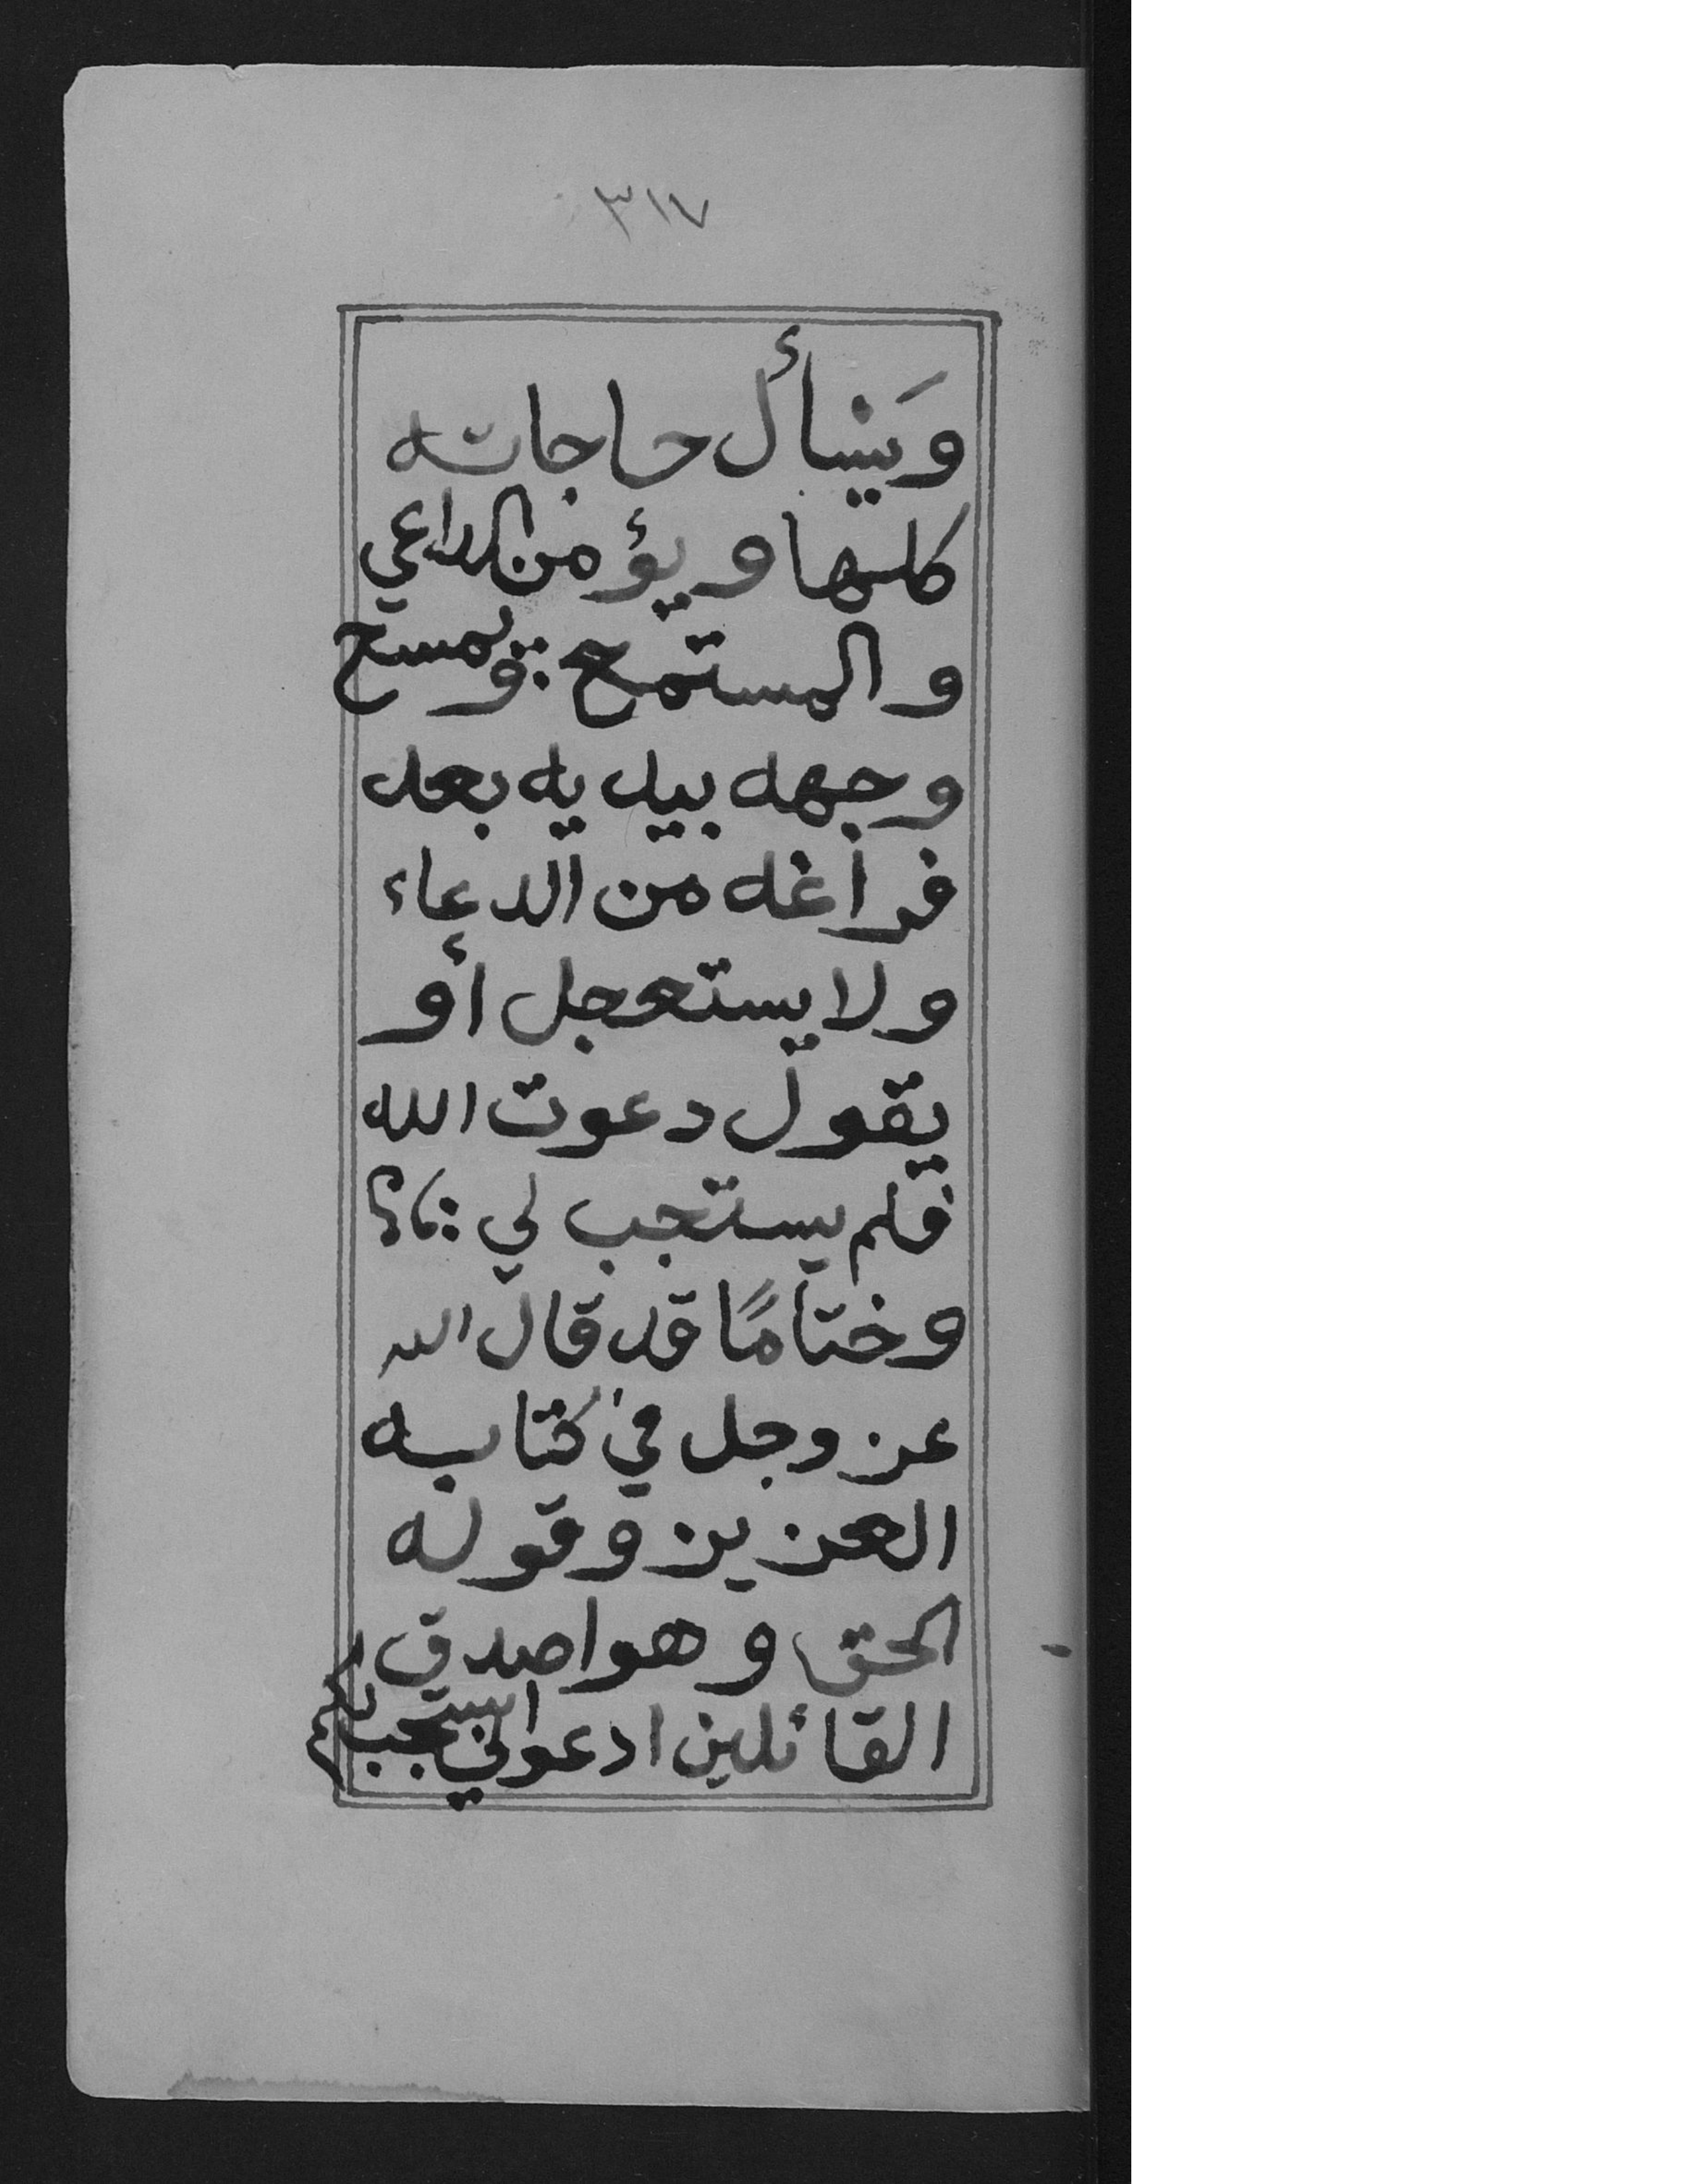 ٣١٧
وَيسأل حاجاته
كلها ويؤمن الداعي
والمستمع ؞ ويمسح
وجهه بيديه بعد
فراغه من الدعاء
ولا يستعجل أو
يقول دعوت الله
فلم يستجب لي
وختامًا قد قال الله
عز وجل في كتابه
العزيز وقوله
الحق وهو اصدق
القائلين ادعوني استجب لكم